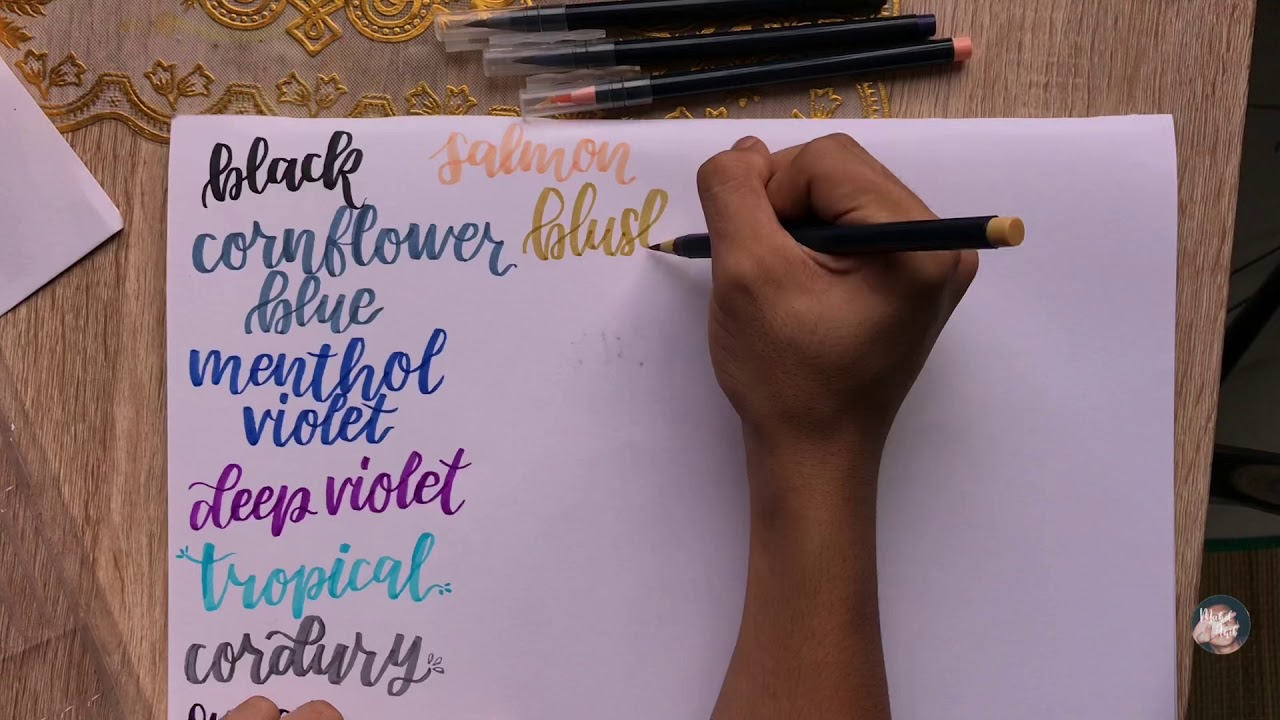 black
cornflower
blue
menthol
violet
deep violet
tropical
cordury
salmon
blus